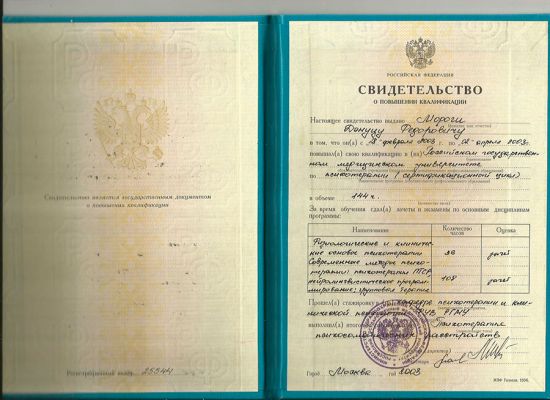 Свидетельство является государственным документом
о повышении квалификации
Регистрационный номер 25544
РОССИЙСКАЯ ФЕДЕРАЦИЯ
СВИДЕТЕЛЬСТВО
О ПОВЫШЕНИИ КВАЛИФИКАЦИИ
Настоящее свидетельство выдано Мороги
Донуцу Федоровичу
в том, что он(а) с февраля 2003 г. по апреля 2003 г.
повысил(а) свою квалификацию в (на) Российском государствен-
ном медицинском университете
по психотерапии (сертификационный цикл)
в объеме 144 ч.
За время обучения сдал(а) зачеты и экзамены по основным дисциплинам
программы:
Наименование Количество часов Оценка
Физиологические и клиничес-
кие основы психотерапии 36 зачет
Современные методы психо-
терапии: психотерапия ПТСР
нейролингвистическое програм- 108 зачет
мирование; групповая терапия
Прошел(а) стажировку в кафедре психотерапии и кли-
нической РГМУ
выполнил(а) Психотерапия
расстройств
Город Москва год 2003